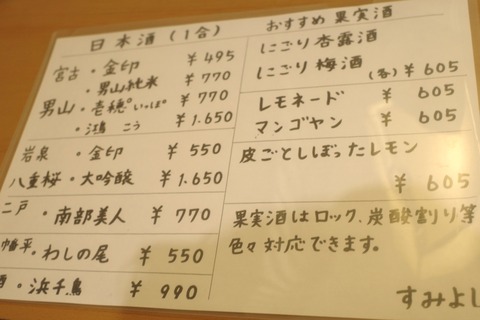 日本酒(1合)
宮古・金印 ¥495
・男山純米 ¥770
男山・壱穂"いっぽ" ¥770
・鴻 こう ¥1.650
岩泉・金印 ¥550
八重桜・大吟醸 ¥1.650
二戸・南部美人 ¥770
幡平・わしの尾 ¥550
・浜千鳥 ¥990
おすすめ 果実酒
にごり杏露酒
にごり梅酒 (各) ¥605
レモネード ¥605
マンゴヤン ¥605
皮ごとしぼったレモン
¥605
果実酒はロック、炭酸割り等
色々対応できます。
すみよし